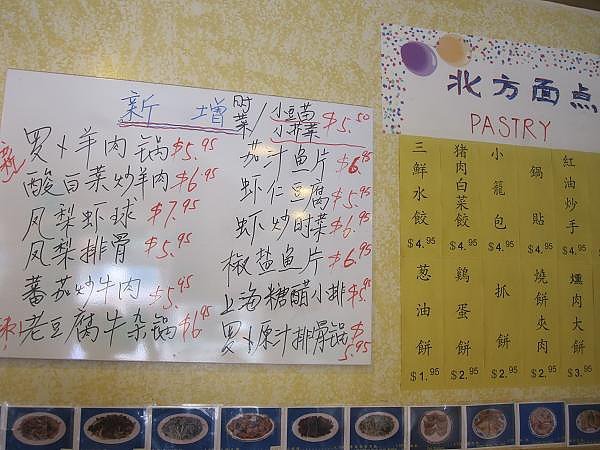 新增
时菜/小豆苗 小菲菜 $5.50
罗卜羊肉锅 $5.95
酸白菜炒羊肉 $6.95
凤梨虾球 $7.95
凤梨排骨 $5.95
蕃茄炒牛肉 $5.95
老豆腐牛杂锅 $6.95
茄汁鱼片 $6.95
虾仁豆腐 $5.95
虾炒时菜 $6.95
椒盐鱼片 $6.95
上海糖醋小排 $5.95
罗卜原汁排骨锅 $5.95
北方面点
PASTRY
三鲜水餃 $4.95
猪肉白菜餃 $4.95
小籠包 $4.95
鍋貼 $4.95
紅油炒手 $4.95
葱油餅 $1.95
鷄蛋餅 $2.95
抓餅 $2.95
燒餅夾肉 $2.95
燻肉大餅 $3.95